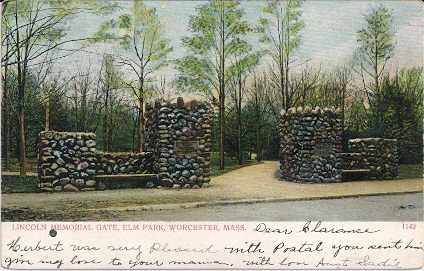 LINCOLN MEMORIAL GATE, ELM PARK, WORCESTER, MASS. Dear Clarance 1142
Herbert was very Pleased with Postal you sent him
give my love to your mama. with lov Aunt Sadie